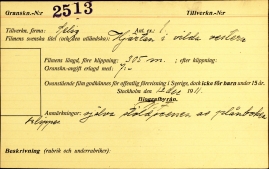 Gransku.-N:r 2513 Tillverkn.-N:r
Tillverkn. firma: Selig Ant. nr 1.
Filmens svenska titel (och ev. utländska): Hjärtan i vilda vestern
Filmens längd, före klippning: 305 m. ; efter klippning:
Granskn.-avgift erlagd med 7:-
Ovanstående film godkännes för offentlig förevisning i Sverige, dock icke för barn under 15 år.
Stockholm den 12 dec. 1911.
Biografbyrån.
Anmärkningar: själva stöldscenen av plånboken
klippes
Beskrivning (rubrik och underrubriker):